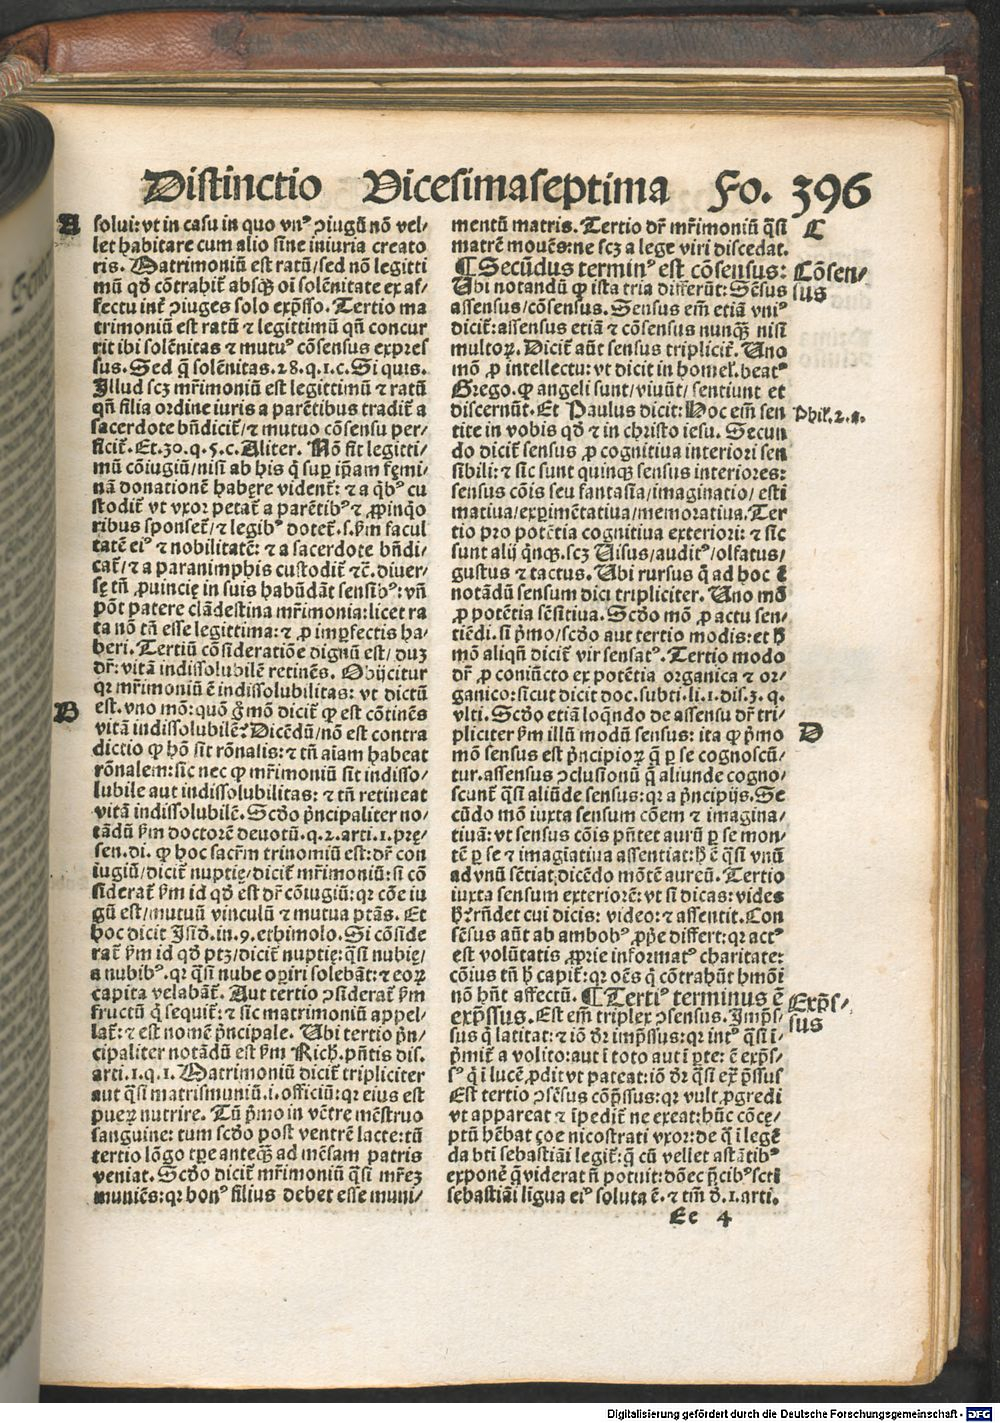 Distinctio Vicesimaseptima Fo. 396
A
solui: vt in casu in quo vnꝰ ↄiugū nō vel/
let habitare cum alio sine iniuria creato
ris. Matrimoniū est ratū/sed nō legitti
mū qd̄ cōtrahit̄ absqꝫ oī solēnitate ex af/
fectu int̄ ↄiuges solo exp̄sso. Tertio ma
trimoniū est ratū ⁊ legittimū qn̄ concur
rit ibi solēnitas ⁊ mutuꝰ cōsensus expres
sus. Sed q̄ solēnitas. 28. q. 1. c. Si quis.
Illud scꝫ mr̄imoniū est legittimū ⁊ ratū
qn̄ filia ordine iuris a parētibus tradit̄ a
sacerdote bn̄dicit̄/⁊ mutuo cōsensu per/
ficit̄. Et. 30. q. 5. c. Aliter. Nō fit legitti/
mū cōiugiū/nisi ab his q̄ suꝑ ip̄am fęmi/
nā donationē habęre vident̄: ⁊ a q̄bꝰ cu
stodit̄ vt vxor petat̄ a parētibꝰ ⁊ ꝓpinq̄o
ribus sponset̄/⁊ legibꝰ dotet̄. s. ẜm facul
tatē eiꝰ ⁊ nobilitatē: ⁊ a sacerdote bn̄di/
cat̄/⁊ a paranimphis custodit̄ ⁊c̄. diuer/
sę tn̄ ꝓuincię in suis habūdāt sensibꝰ: vn̄
pōt patere clādestina mr̄imonia: licet ra
ta nō tn̄ esse legittima: ⁊ ꝓ imꝑfectis ha/
beri. Tertiū cōsideratiōe dignū est/ duꝫ
dr̄: vitā indissolubilē retinēs. Obijcitur
qꝛ mr̄imoniū ē indissolubilitas: vt dictū
B
est. vno mō: quō g̊ mō dicit̄ ꝙ est cōtinēs
vitā indissolubilē? Dicēdū/nō est contra
dictio ꝙ hō sit rōnalis: ⁊ tn̄ aīam habeat
rōnalem: sic nec ꝙ mr̄imoniū sit indisso/
lubile aut indissolubilitas: ⁊ tn̄ retineat
vitā indissolubilē. Scd̄o p̄ncipaliter no/
tādū ẜm doctorē deuotū. q. 2. arti. 1. pre/
sen. di. ꝙ hoc sacr̄m trinomiū est: dr̄ con
iugiū/dicit̄ nuptię/dicit̄ mr̄imoniū: si cō
siderat̄ ẜm id qd̄ est dr̄ cōiugiū: qꝛ cōe iu
gū est/mutuū vinculū ⁊ mutua ptās. Et
hoc dicit Isid̄. in. 9. ethimolo. Si cōside
rat̄ ẜm id qd̄ ptꝫ/dicit̄ nuptię: q̄si nubię/
a nubibꝰ. qꝛ q̄si nube oꝑiri solebāt: ⁊ eoꝝ
capita velabāt̄. Aut tertio ↄsiderat̄ ẜm
fructū q̄ sequit̄: ⁊ sic matrimoniū appel/
lat̄: ⁊ est nomē p̄ncipale. Ubi tertio p̄n/
cipaliter notādū est ẜm Rich. p̄ntis dis.
arti. 1. q. 1. Matrimoniū dicit̄ tripliciter
aut q̄si matrismuniū. i. officiū: qꝛ eius est
pueꝝ nutrire. Tū p̄mo in vētre mēstruo
sanguine: tum scd̄o post ventrē lacte: tū
tertio lōgo tꝑe anteq̄ꝫ ad mēsam patris
veniat. Scd̄o dicit̄ mr̄imoniū q̄si mr̄eꝫ
muniēs: qꝛ bonꝰ filius debet esse muni/
mentū matris. Tertio dr̄ mr̄imoniū q̄si
C
matrē mouēs: ne scꝫ a lege viri discedat.
¶ Secūdus terminꝰ est cōsensus:
Cōsen/
sus
Ubi notandū ꝙ ista tria differūt: Sēsus
assensus/cōsensus. Sensus em̄ etiā vniꝰ
dicit̄: assensus etiā ⁊ cōsensus nunqꝫ nisi
multoꝝ. Dicit̄ aūt sensus triplicit̄. Uno
mō ꝓ intellectu: vt dicit in homel̄. beatꝰ
Grego. ꝙ angeli sunt/viuūt/ sentiunt et
discernūt. Et Paulus dicit: Hoc em̄ sen
Phil̄. 2. a.
tite in vobis qd̄ ⁊ in christo iesu. Secun
do dicit̄ sensus ꝓ cognitiua interiori sen
sibili: ⁊ sic sunt quinqꝫ sensus interiores:
sensus cōis seu fantasia/imaginatio/ esti
matiua/exꝑimētatiua/memoratiua. Ter
tio pro potētia cognitiua exteriori: ⁊ sic
sunt alij q̄nqꝫ. scꝫ Uisus/auditꝰ/olfatus/
gustus ⁊ tactus. Ubi rursus q̄ ad hoc ē
notādū sensum dici tripliciter. Uno mō
ꝓ potētia sēsitiua. Scd̄o mō ꝓ actu sen/
tiēdi. si p̄mo/scd̄o aut tertio modis: et h̄
mō aliqn̄ dicit̄ vir sensatꝰ. Tertio modo
dr̄ ꝓ coniūcto ex potētia organica ⁊ or/
ganico: sicut dicit doc. subti. li. 1. dis. 3. q.
vlti. Scd̄o etiā loq̄ndo de assensu dr̄ tri/
pliciter ẜm illū modū sensus: ita ꝙ p̄mo
D
mō sensus est p̄ncipioꝝ q̄ ꝑ se cognoscū/
tur. assensus ↄclusionū q̄ aliunde cogno/
scunt̄ q̄si aliūde sensus: qꝛ a p̄ncipijs. Se
cūdo mō iuxta sensum cōem ⁊ imagina/
tiuā: vt sensus cōis pn̄tet aurū ꝑ se mon/
tē ꝑ se ⁊ imagiatiua assentiat: h̄ ē q̄si vnū
ad vnū sētiat dicēdo mōtē aureū. Tertio
iuxta sensum exteriorē: vt si dicas: vides
h̄? rn̄det cui dicis: video: ⁊ assentit. Con
sēsus aūt ab ambobꝰ ꝓp̄e differt: qꝛ actꝰ
est volūtatis ꝓprie informatꝰ charitate:
cōius tn̄ h̄ capit̄: qꝛ oēs q̄ cōtrahūt hmōi
nō hn̄t affectū. ¶ Tertiꝰ terminus ē
Exp̄s/
sus
exp̄ssus. Est em̄ triplex ↄsensus. Imp̄s/
sus q̄ latitat: ⁊ iō dr̄ imp̄ssus: qꝛ intꝰ q̄si ī/
p̄mit̄ a volito: aut ī toto aut ī ꝑte: ē exp̄s/
sꝰ q̄ ī lucē ꝓdit vt pateat: iō dr̄ q̄si ex̄ p̄ssus
Est tertio ↄsēsus cōp̄ssus: qꝛ vult ꝓgredi
vt appareat ⁊ īpedit̄ ne exeat: hūc cōce/
ptū hēbat ȝoe nicostrati vxor: de q̄ ī legē
da bti sebastiāi legit̄: q̄ cū vellet astātibꝰ
exponē q̄ viderat n̄ potuit: dōec p̄cibꝰ scti
sebastiāi ligua eiꝰ soluta ē. ⁊ tm̄ d̄. 1. arti.
Ee 4
Digitalisierung gefördert durch die Deutsche Forschungsgemeinschaft - DFG